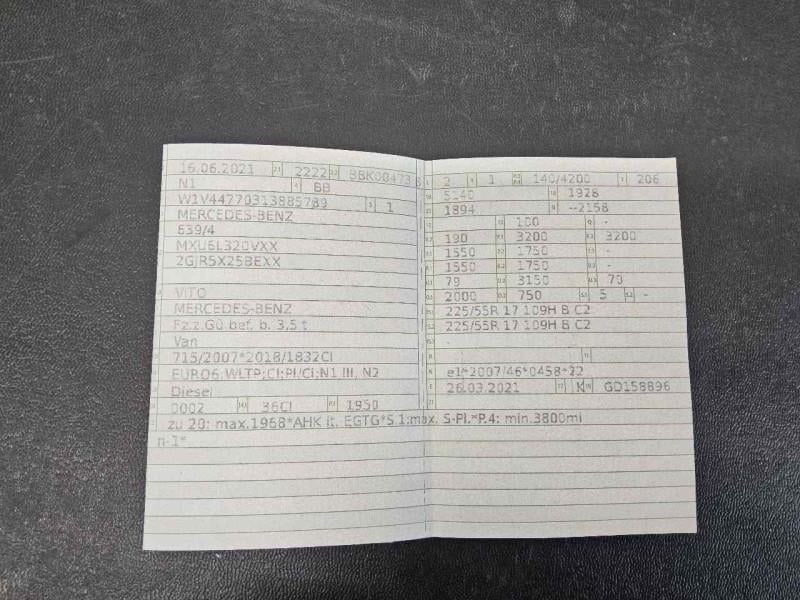 16.06.2021 2.1 2222 2.2 BBK00473 8
N1 4 BB
W1V44770313885789 3 1
MERCEDES-BENZ
639/4
MXU6L320VXX
2GJR5X25BEXX
VITO
MERCEDES-BENZ
Fz.z.Gü.bef. b. 3,5 t
Van
715/2007*2018/1832CI
EURO6;WLTP;CI;PI/CI;N1 III, N2
Diesel
0002 36CI 1950
L 2 9 1 140/4200 T 206
18 5140 19 1928
20 1894 G --2158
12 13 100 Q -
V.7 190 F.1 3200 F.2 3200
1550 1750 -
1550 1750 -
U.1 79 U.2 3150 U.3 70
O.1 2000 O.2 750 S.1 5 S.2 -
15.1 225/55R 17 109H B C2
15.2 225/55R 17 109H B C2
15.3
R 11
K e1*2007/46*0458*22
6 26.03.2021 17 K 16 GD158896
21
zu 20: max.1968*AHK lt. EGTG*S.1:max. S-Pl.*P.4: min.3800mi
n-1*